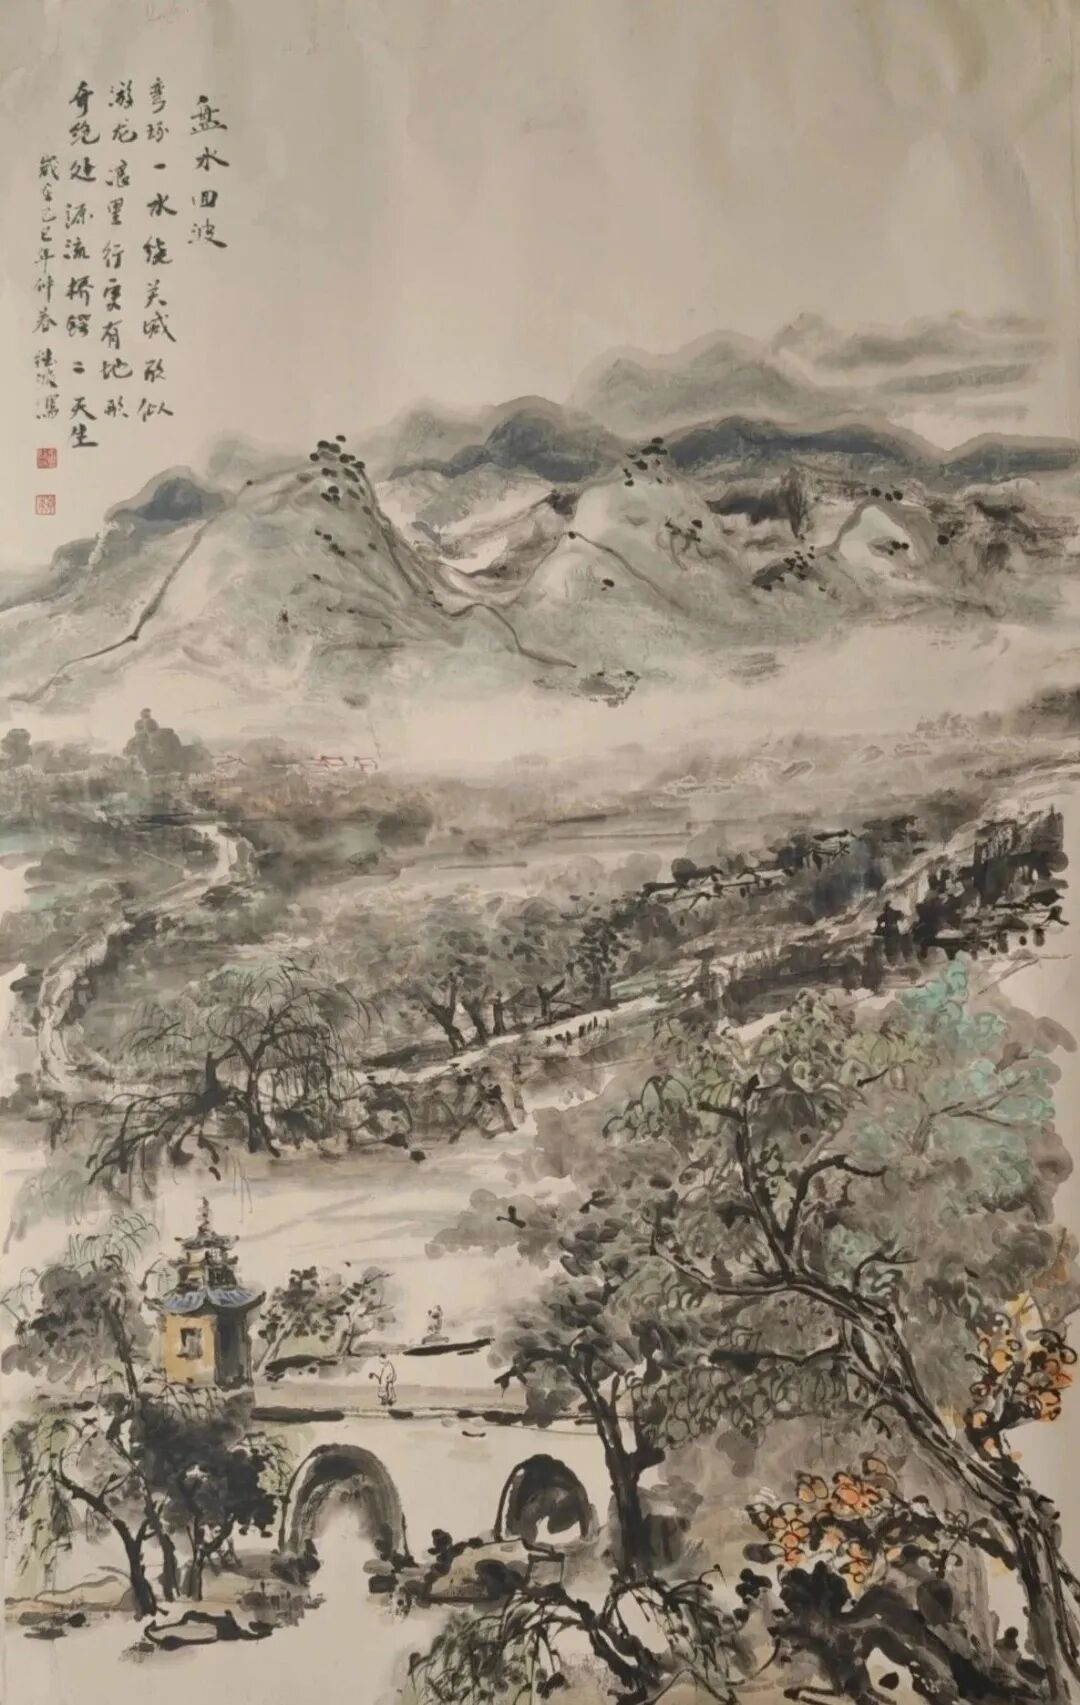 盘水回波
弯环一水绕关城似
游龙浪里行更有地形
奇绝处源流桥二天生
岁在巳年仲春写